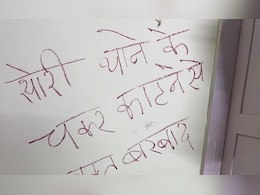 सोरी थोने के
चकर काटने से
बरबाद